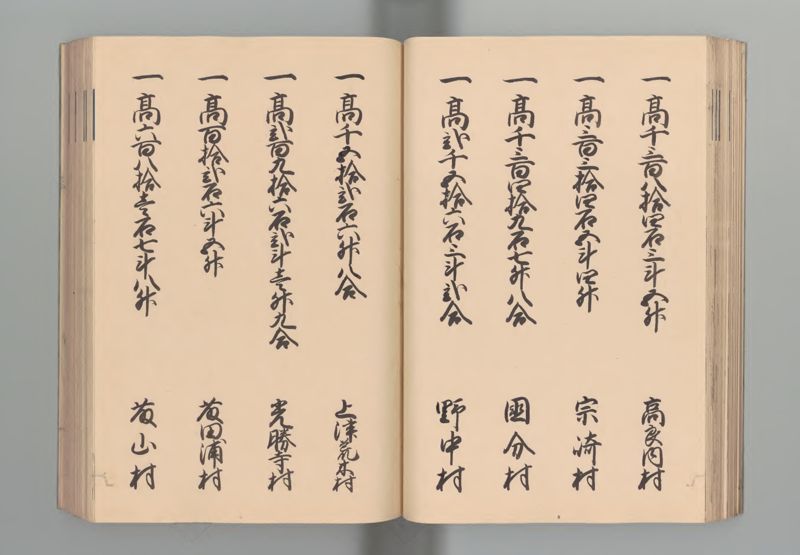 一高千三百八拾四石三斗五升 高良内村
一高三百三拾四石五斗四升 宗崎村
一高千三百四拾九石七升八合 国分村
一高弐千五拾六石三斗弐合 野中村
一高千五拾弐石六升八合 上津荒木村
一高弐百九拾六石弐斗壱升九合 光勝寺村
一高百拾弐石六斗五升 藤田浦村
一高六百八拾壱石七斗八升 藤山村